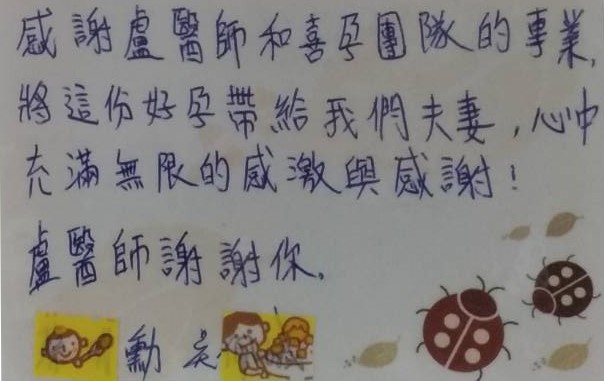 感謝盧醫師和喜孕團隊的專業,
將這份好孕帶給我們夫妻,心中
充滿無限的感激與感謝!
盧醫師謝謝你.
勳